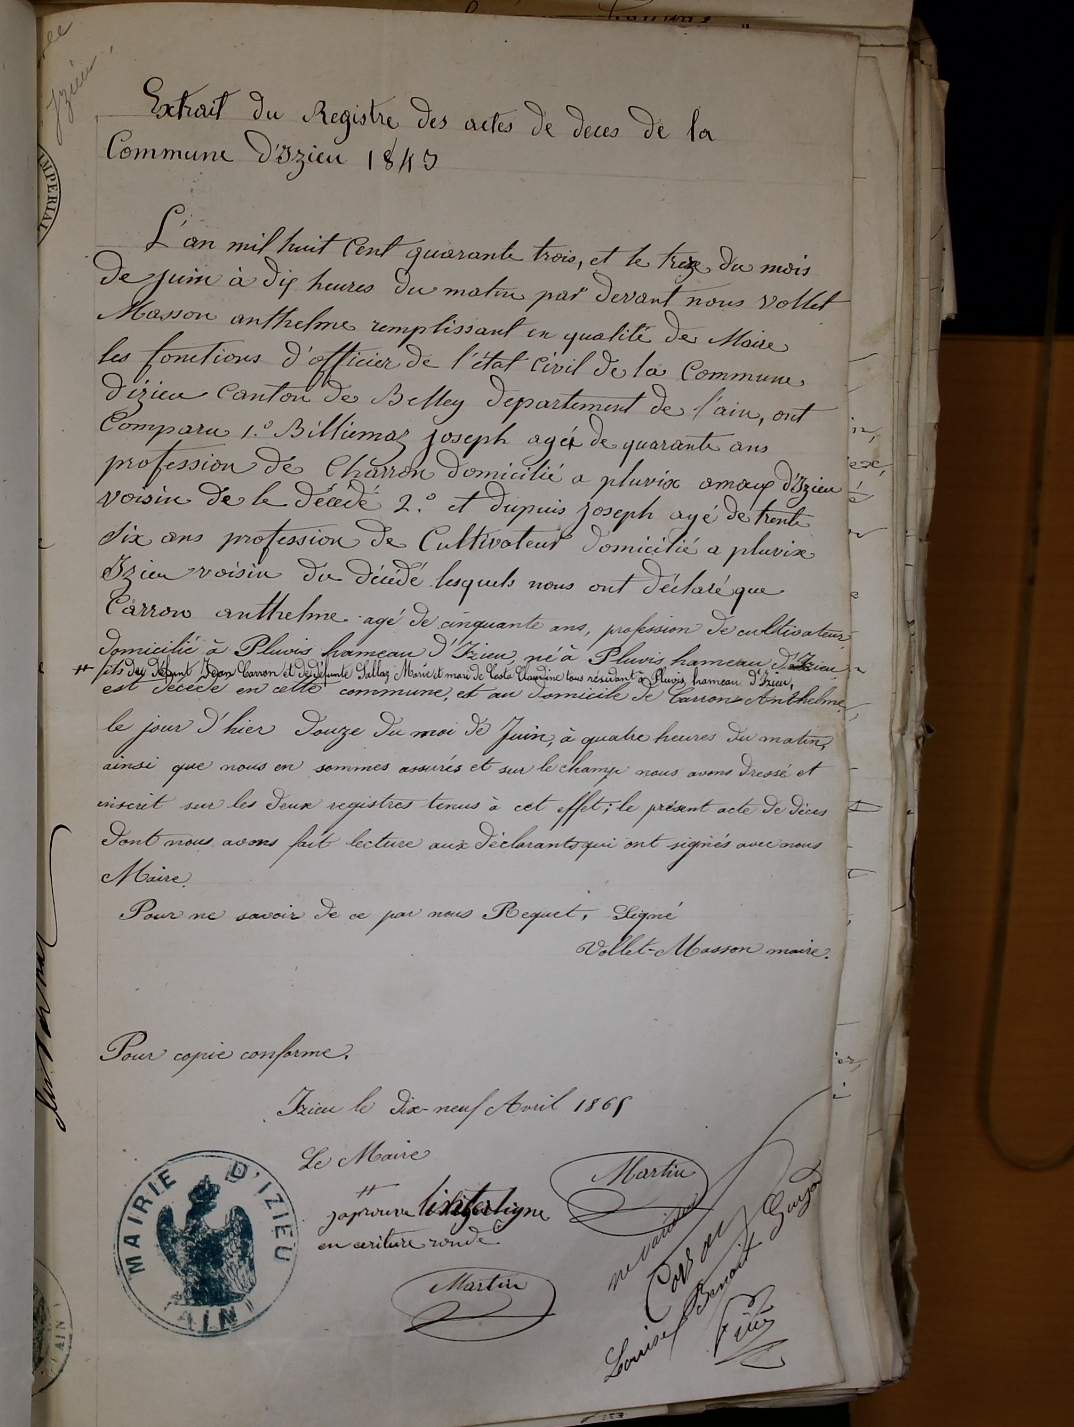 Izieu
IMPERIAL
Extrait du Registre des actes de deces de la
Commune d'Izieu 1843
L'an mil huit Cent quarante trois, et le treze du mois
de Juin à dix heures du matin par devant nous Vollet
Masson anthelme remplissant en qualité de Maire
les fonctions d'officier de l'état Civil de la Commune
d'izieu Canton de Belley departement de l'ain, ont
Comparu 1.° Billiemaz joseph agé de quarante ans
profession de Charron domicilié a pluvix amaux d'Izieu
voisin de le décédé 2.° et dupuis joseph agé de trente
six ans profession de Cultivateur domicilié a pluvix
Izieu voisin du décédé lesquels nous ont déclaré que
Carron anthelme agé de cinquante ans, profession de cultivateur
domicilié à Pluvis hameau d'Izieu, né à Pluvis hameau d'Izieu
# fils du défunt Jean Carron et de défunte Sallaz Marie et mari de Claudine tous résidant à Pluvis hameau d'Izieu,
est décédé en cette commune, et au domicile de Carron Anthelme
le jour d'hier douze du moi de Juin, à quatre heures du matin,
ainsi que nous en sommes assurés et sur le champ nous avons dressé et
inscrit sur les deux registres tenus à cet effet; le présent acte de décès
dont nous avons fait lecture aux déclarants qui ont signés avec nous
Maire.
Pour ne savoir de ce par nous Requet, Signé
Vollet-Masson maire.
Pour copie conforme.
Izieu le dix-neuf Avril 1865
Le Maire
Martin
# japrouve linterligne
en ecriture ronde
Martin
MAIRIE D'IZIEU
(AIN)
ne varietur
Louise Benoit
AIN